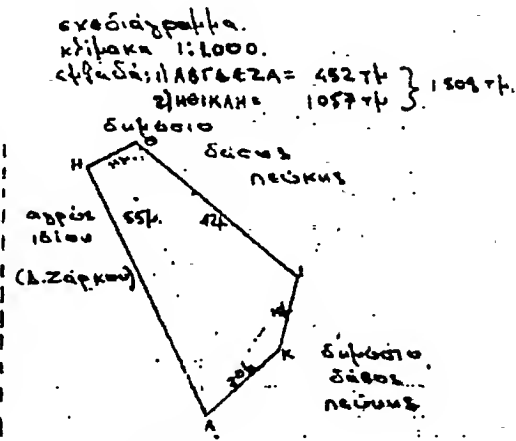 σχεδιάγραμμα.
κλίμακα 1:1000.
εμβαδά: 1) ΑΒΓΔΕΖΑ = 452 τμ
2) ΗΘΙΚΛΗ = 1057 τμ
1509 τμ.
δημόσιο
δάσος
πεύκης
Θ
Η
αγρός
ιδίου
(Δ. Ζάρκου)
55μ.
42μ
Ι
Κ
20μ
Λ
δημόσιο
δάσος
πεύκης